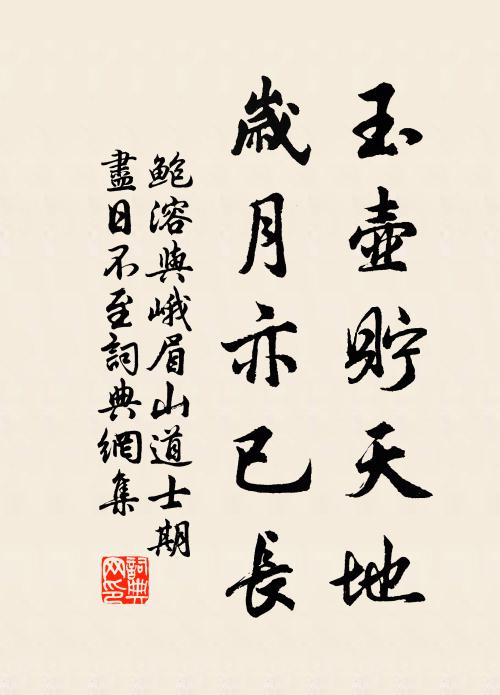 玉壺貯天地
歲月亦已長
鮑溶與峨眉山道士期
盡日不至詞典網集
詞典网印